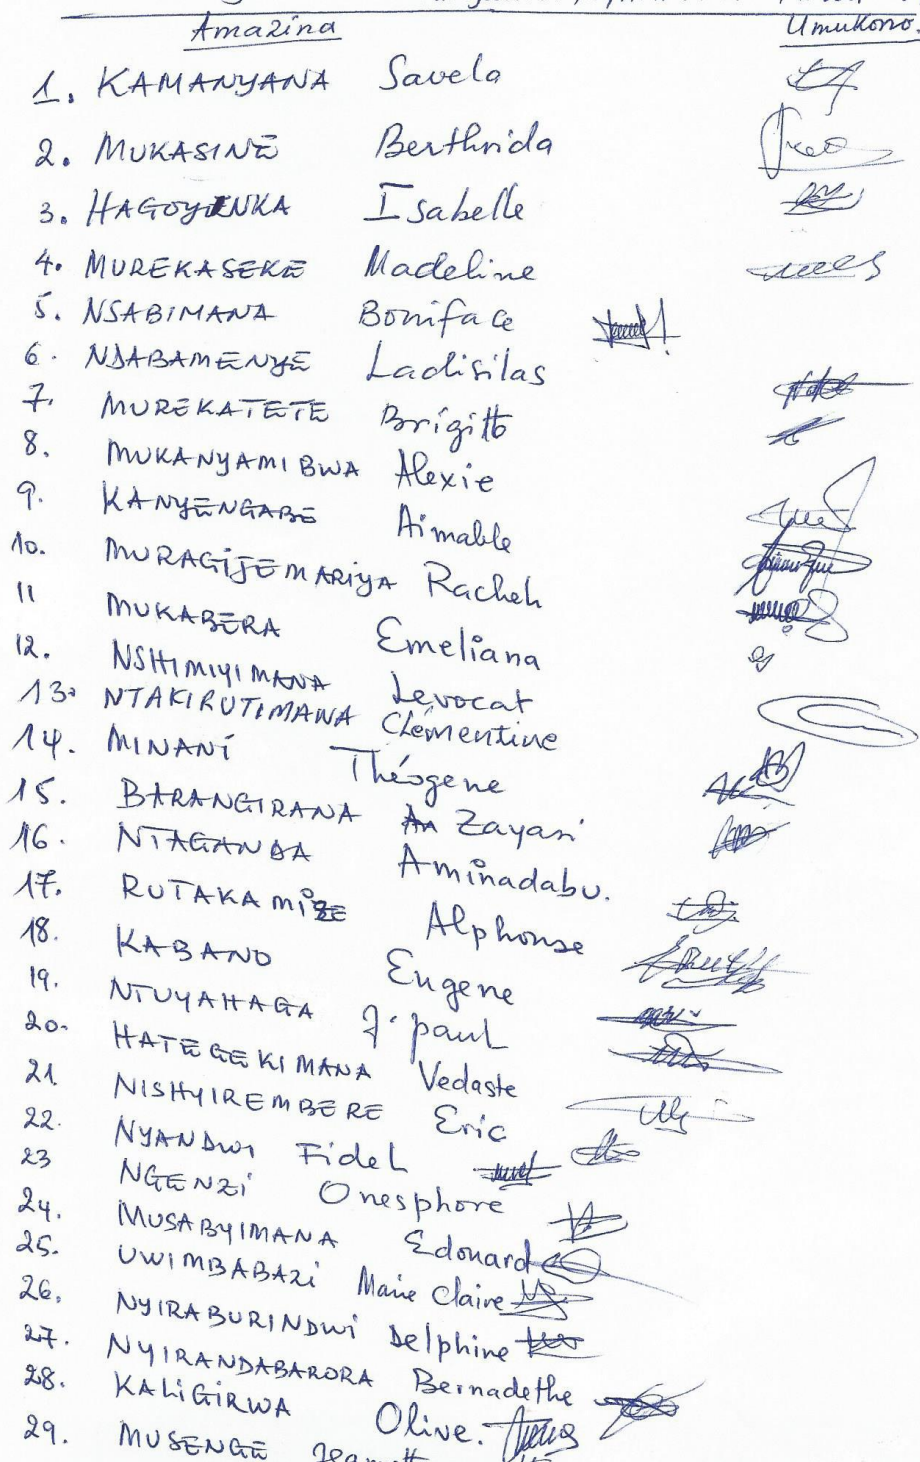 Amazina Umukono.
1. KAMANYANA Savela
2. MUKASINE Berthrida
3. HAGOYINKA Isabelle
4. MUREKASEKE Madeline
5. NSABIMANA Boniface
6. NDABAMENYE Ladisilas
7. MUREKATETE Brigitte
8. MUKANYAMIBWA Alexie
9. KANYENGABE Aimable
10. MURAGIJEMARIYA Rachel
11 MUKABERA Emeliana
12. NSHIMIYIMANA Levocat
13. NTAKIRUTIMANA Clémentine
14. MINANI Théogene
15. BARANGIRANA Zayasi
16. NTAGANDA Aminadabu.
17. RUTAKAMIZE Alphonse
18. KABANO Eugene
19. NTUYAHAGA J. paul
20. HATEGEKIMANA Vedaste
21 NISHYIREMBERE Eric
22. NYANDWI Fidel
23 NGENZI Onesphore
24. MUSABYIMANA Edouard
25. UWIMBABAZI Marie Claire
26. NYIRABURINDWI Delphine
27. NYIRANDABARORA Bernadethe
28. KALIGIRWA Olive.
29. MUSENGE